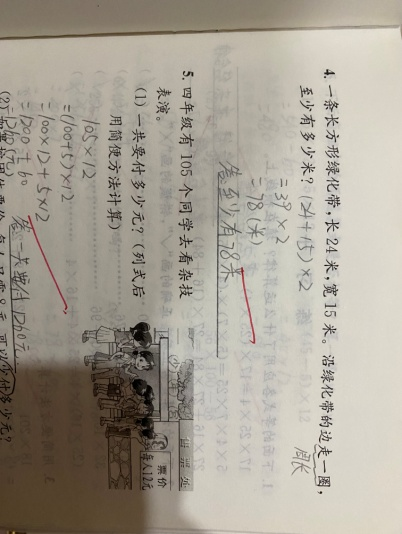 4. 一条长方形绿化带，长 24 米，宽 15 米。沿绿化带的边走一圈，
周长
至少有多少米？(24+15)×2
=39×2
=78(米)
答：至少有78米
5. 四年级有 105 个同学去看杂技
表演。
(1) 一共要付多少元？（列式后
用简便方法计算）
105×12
=(100+5)×12
=100×12+5×12
=1200+60
答：一共要付1260元
售票处
票价
每人12元